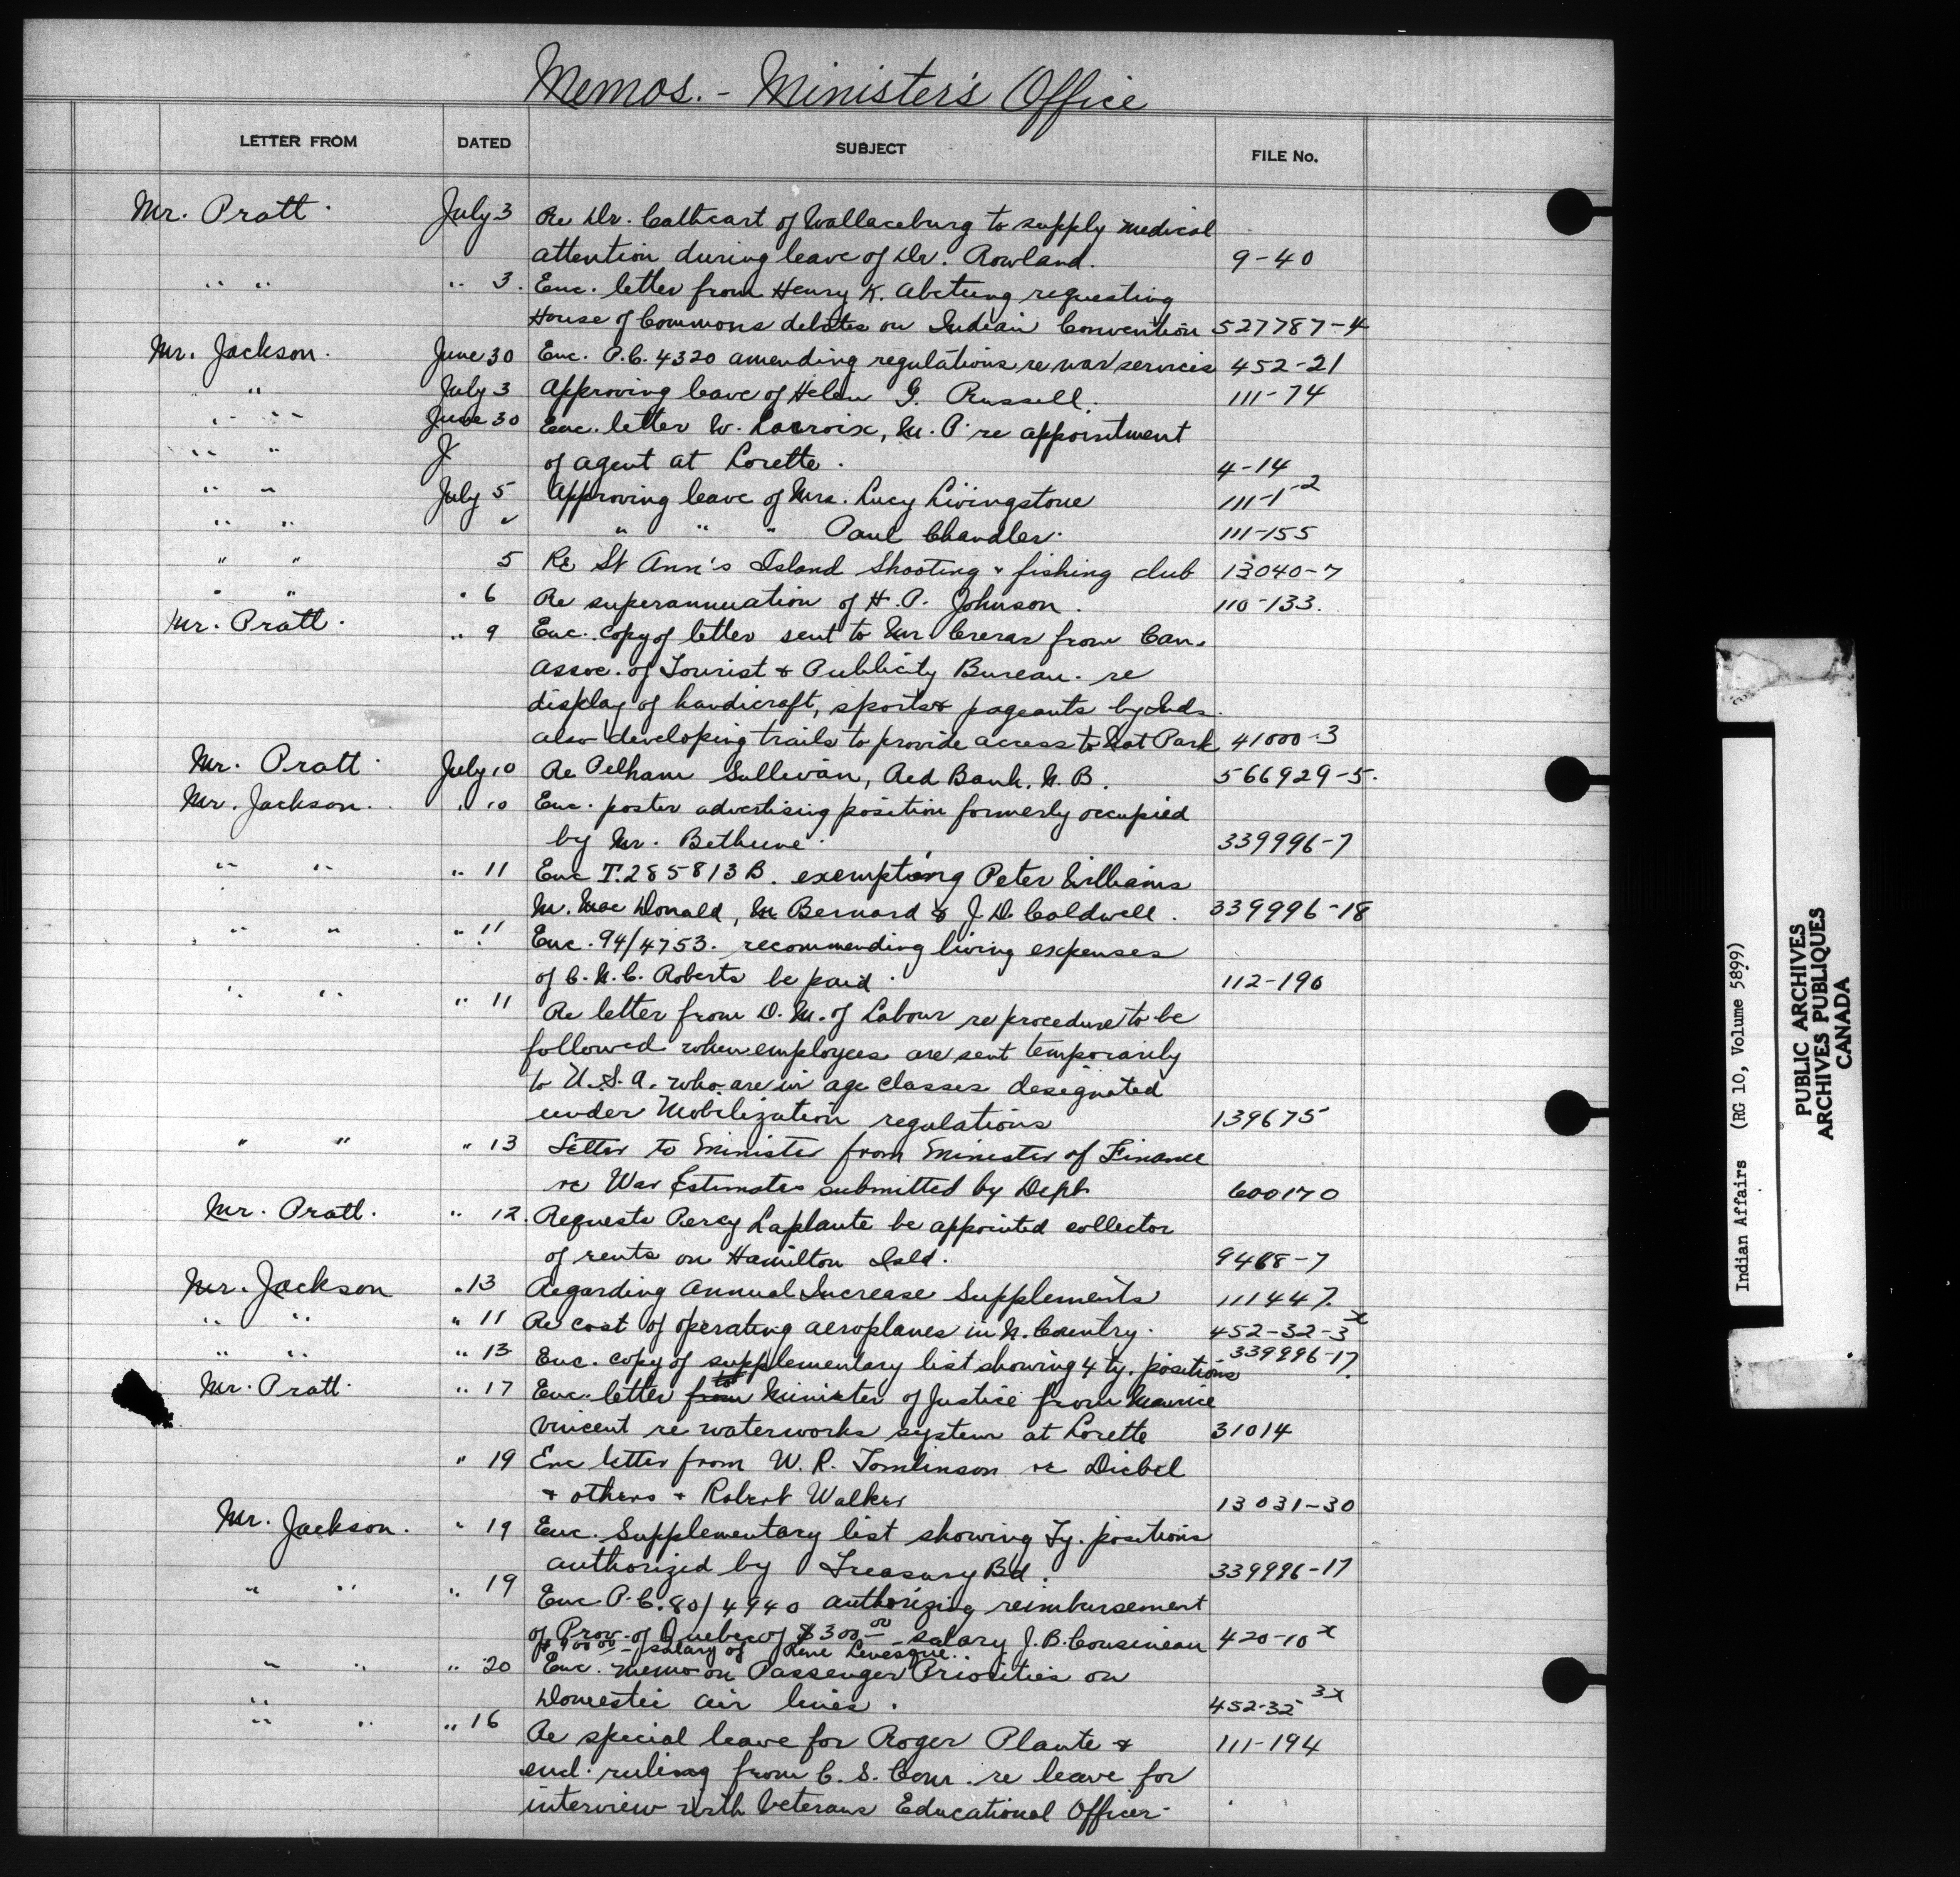 Memos. - Minister's Office
LETTER FROM DATED SUBJECT FILE No.
Mr. Pratt. July 3 Re Dr. Cathcart of Wallaceburg to supply medical
attention during leave of Dr. Rowland. 9-40
" " " 3. Enc. letter from Henry K. requesting
House of Commons debates on Indian Convention 527787-4
Mr. Jackson. June 30 Enc. P.C. 4320 amending regulations re war services 452-21
" July 3 Approving leave of Helen G. Russell. 111-74
" " June 30 Enc. letter W. Lacroix, M.P. re appointment
" " of agent at Lorette. 4-14
" " July 5 Approving leave of Mrs. Lucy Livingstone 111-1-2
" " " " " " Paul Chandler. 111-155
" " 5 Re St Ann's Island Shooting & fishing club 13040-7
" " " 6 Re superannuation of H.P. Johnson. 110-133.
Mr. Pratt. " 9 Enc. copy of letter sent to Mr Crerar from Can.
Assoc. of Tourist & Publicity Bureau. re
display of handicraft, sports & pageants by Inds.
also developing trails to provide access to Nat Park 41000-3
Mr. Pratt July 10 Re Pelham Sullivan, Red Bank, N.B. 566929-5.
Mr. Jackson. " 10 Enc. poster advertising position formerly occupied
by Mr. Bethune. 339996-7
" " " 11 Enc T.285813B. exempting Peter Williams
M. Mac Donald, M Bernard & J.D. Caldwell. 339996-18
" " " 11 Enc. 94/4753. recommending living expenses
of C.N.C. Roberts be paid. 112-190
" " " 11 Re letter from D.M. of Labour re procedure to be
followed when employees are sent temporarily
to U.S.A. who are in age classes designated
under Mobilization regulations 139675
" " " 13 Letter to Minister from Minister of Finance
re War Estimates submitted by Dept 600170
Mr. Pratt. " 12. Requests Percy Laplante be appointed collector
of rents on Hamilton Isld. 9468-7
Mr. Jackson " 13 Regarding Annual Increase Supplements 111447.
" " " 11 Re cost of operating aeroplanes in N. Country. 452-32-3x
" " " 13 Enc. copy of supplementary list showing 4 ty. positions 339996-17.
Mr. Pratt. " 17 Enc. letter from to Minister of Justice from Maurice
Vincent re waterworks system at Lorette 31014
" 19 Enc letter from W.R. Tomlinson re Diebel
& others & Robert Walker 13031-30
Mr. Jackson. " 19 Enc. Supplementary list showing Ty. positions
authorized by Treasury Bd. 339996-17
" " " 19 Enc. P.C. 80/4940 authorizing reimbursement
of Prov. of Quebec of $300.00 - salary J.B. Cousineau 420-10x
salary of Rene Levesque.
" " " 20 Enc. memo on Passenger Priorities on
" Domestic air lines. 452-32 3x
" " " 16 Re special leave for Roger Plante & 111-194
encl. ruling from C.S. Com. re leave for
interview with Veterans Educational Officer.
Indian Affairs (RG 10, Volume 5899)
PUBLIC ARCHIVES
ARCHIVES PUBLIQUES
CANADA